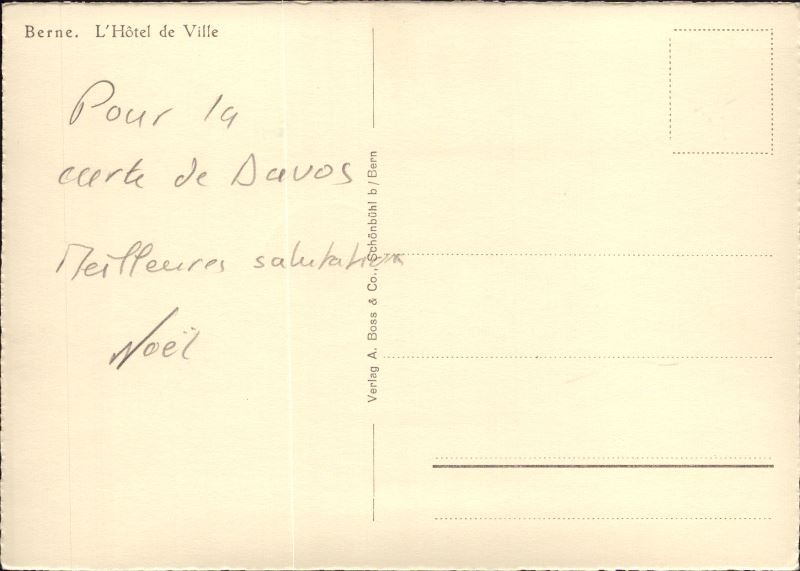 Berne. L'Hôtel de Ville
Pour la
carte de Davos
Meilleures salutations
Noël
Verlag A. Boss & Co., Schönbühl b/Bern